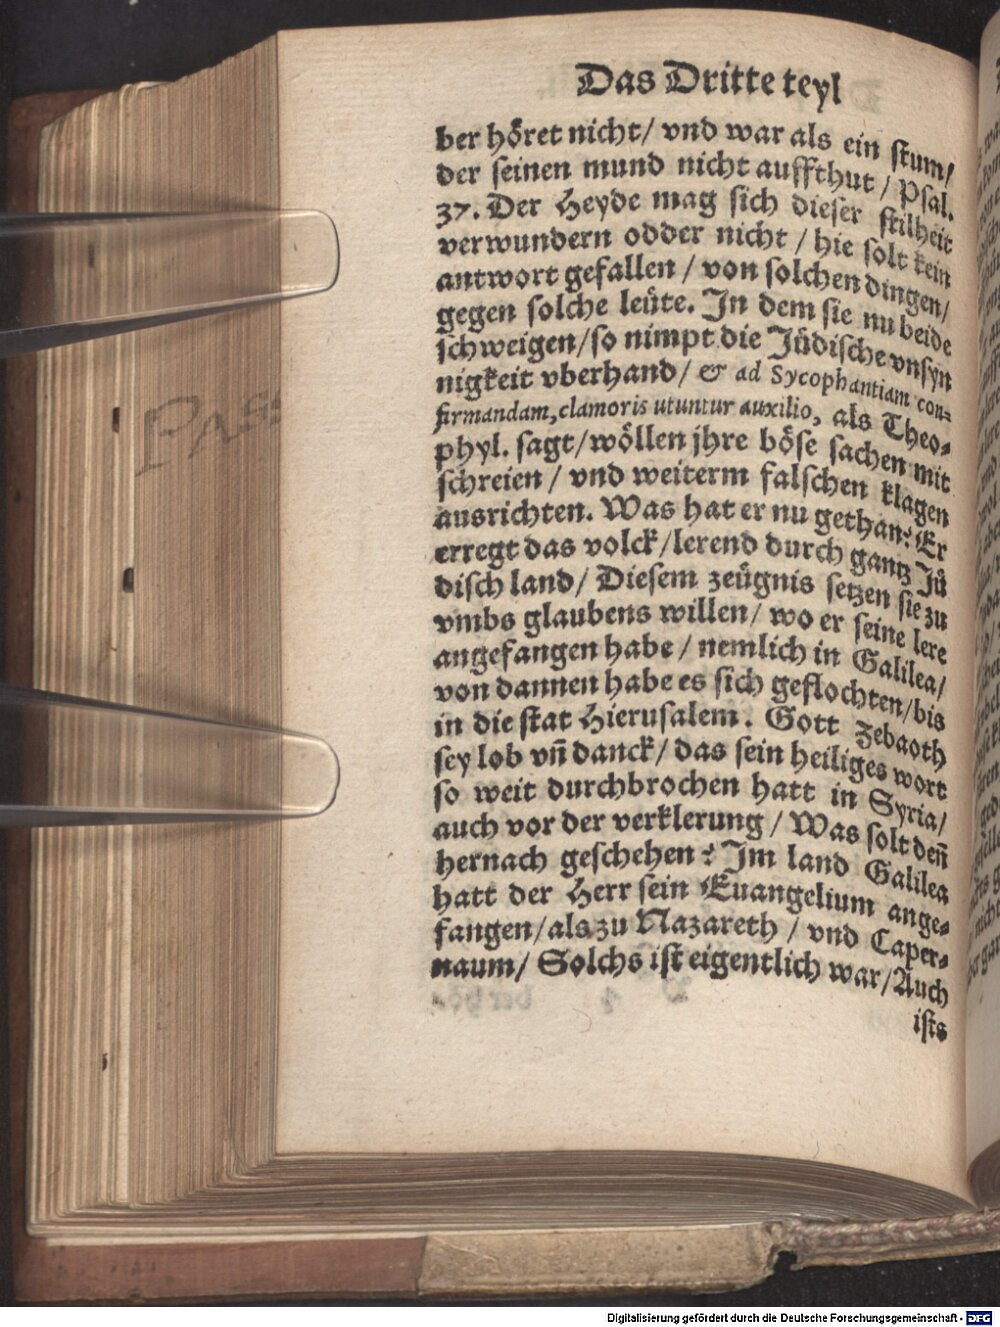 Das Dritte teyl
ber höret nicht/ vnd war als ein stum/
der seinen mund nicht auffthut / Psal.
37. Der Heyde mag sich dieser stilheit
verwundern odder nicht / hie solt kein
antwort gefallen / von solchen dingen/
gegen solche leüte. In dem sie nu beide
schweigen/so nimpt die Jüdische vnsyn
nigkeit vberhand/ & ad Sycophantiam con-
firmandam, clamoris utuntur auxilio, als Theo-
phyl. sagt/wöllen jhre böse sachen mit
schreien / vnd weiterm falschen klagen
ausrichten. Was hat er nu gethan? Er
erregt das volck/lerend durch gantz Jü
disch land/ Diesem zeügnis setzen sie zu
vmbs glaubens willen/ wo er seine lere
angefangen habe / nemlich in Galilea/
von dannen habe es sich geflochten/bis
in die stat Hierusalem. Gott Zebaoth
sey lob vñ danck/ das sein heiliges wort
so weit durchbrochen hatt in Syria/
auch vor der verklerung / Was solt deñ
hernach geschehen? Im land Galilea
hatt der Herr sein Euangelium ange-
fangen/als zu Nazareth / vnd Caper-
naum/ Solchs ist eigentlich war/Auch
ists
Digitalisierung gefördert durch die Deutsche Forschungsgemeinschaft - DFG